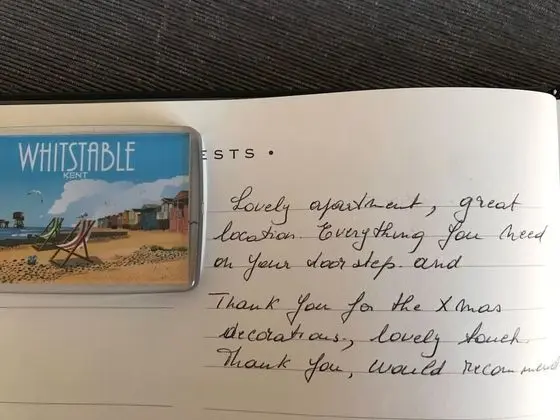 WHITSTABLE
KENT
ESTS •
Lovely apartment, great
location. Everything you need
on your doorstep. and
Thank you for the Xmas
decorations., lovely touch.
Thank you, would recommend